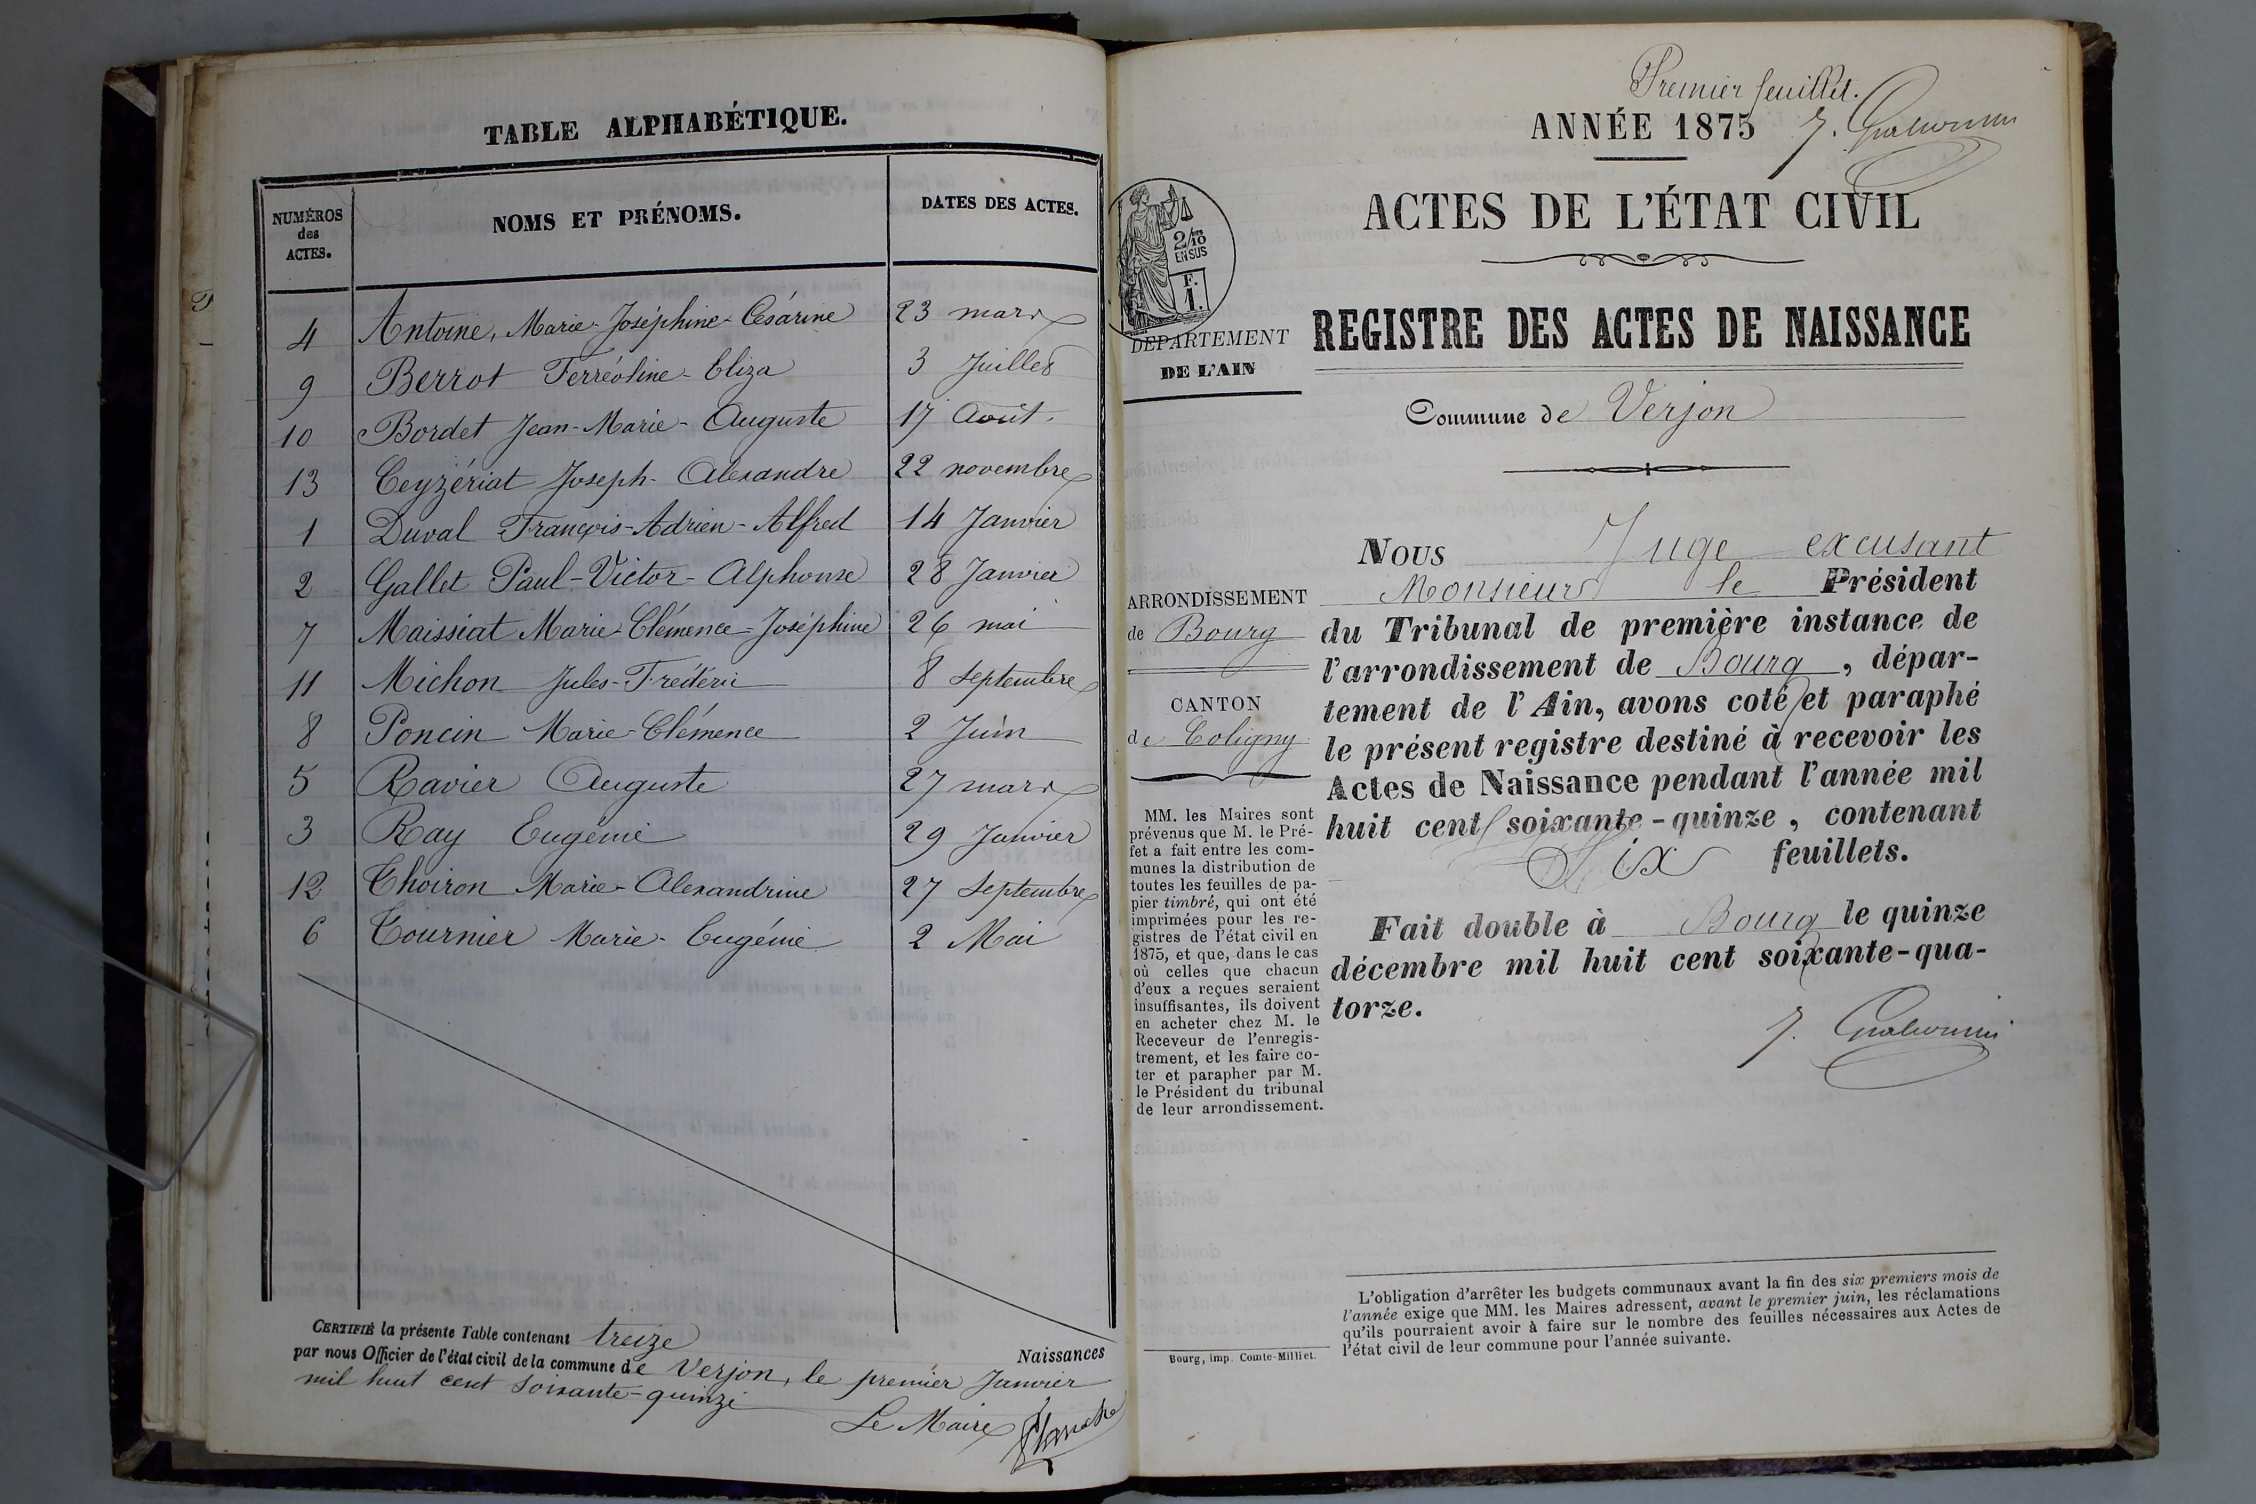 TABLE ALPHABÉTIQUE.
NUMÉROS des ACTES. NOMS ET PRÉNOMS. DATES DES ACTES.
4 Antoine, Marie-Joséphine-Césarine 23 mars
9 Berrot Ferréoline-Eliza 3 Juillet
10 Bordet Jean-Marie-Auguste 17 Août.
13 Ceyzériat Joseph-Alexandre 22 novembre
1 Duval François-Adrien-Alfred 14 Janvier
2 Gallet Paul-Victor-Alphonse 28 Janvier
7 Maissiat Marie-Clémence-Joséphine 26 mai
11 Michon Jules-Frédéric 8 Septembre
8 Poncin Marie-Clémence 2 Juin
5 Ravier Auguste 27 mars
3 Ray Eugénie 29 Janvier
12 Thoiron Marie-Alexandrine 27 Septembre
6 Tournier Marie-Eugénie 2 Mai
CERTIFIÉ la présente Table contenant treize Naissances
par nous Officier de l'état civil de la commune de Verjon, le premier Janvier
mil huit cent soixante-quinze
Le Maire
Premier feuillet.
ANNÉE 1875
ACTES DE L'ÉTAT CIVIL
2/10
EN SUS
F.
1.
DÉPARTEMENT
DE L'AIN
REGISTRE DES ACTES DE NAISSANCE
Commune de Verjon
ARRONDISSEMENT
de Bourg
CANTON
de Coligny
MM. les Maires sont
prévenus que M. le Pré-
fet a fait entre les com-
munes la distribution de
toutes les feuilles de pa-
pier timbré, qui ont été
imprimées pour les re-
gistres de l'état civil en
1875, et que, dans le cas
où celles que chacun
d'eux a reçues seraient
insuffisantes, ils doivent
en acheter chez M. le
Receveur de l'enregis-
trement, et les faire co-
ter et parapher par M.
le Président du tribunal
de leur arrondissement.
Nous Juge excusant
Monsieur le Président
du Tribunal de première instance de
l'arrondissement de Bourg, dépar-
tement de l'Ain, avons coté et paraphé
le présent registre destiné à recevoir les
Actes de Naissance pendant l'année mil
huit cent soixante-quinze, contenant
Six feuillets.
Fait double à Bourg le quinze
décembre mil huit cent soixante-qua-
torze.
L'obligation d'arrêter les budgets communaux avant la fin des six premiers mois de
l'année exige que MM. les Maires adressent, avant le premier juin, les réclamations
qu'ils pourraient avoir à faire sur le nombre des feuilles nécessaires aux Actes de
l'état civil de leur commune pour l'année suivante.
Bourg, imp. Comte-Milliet.